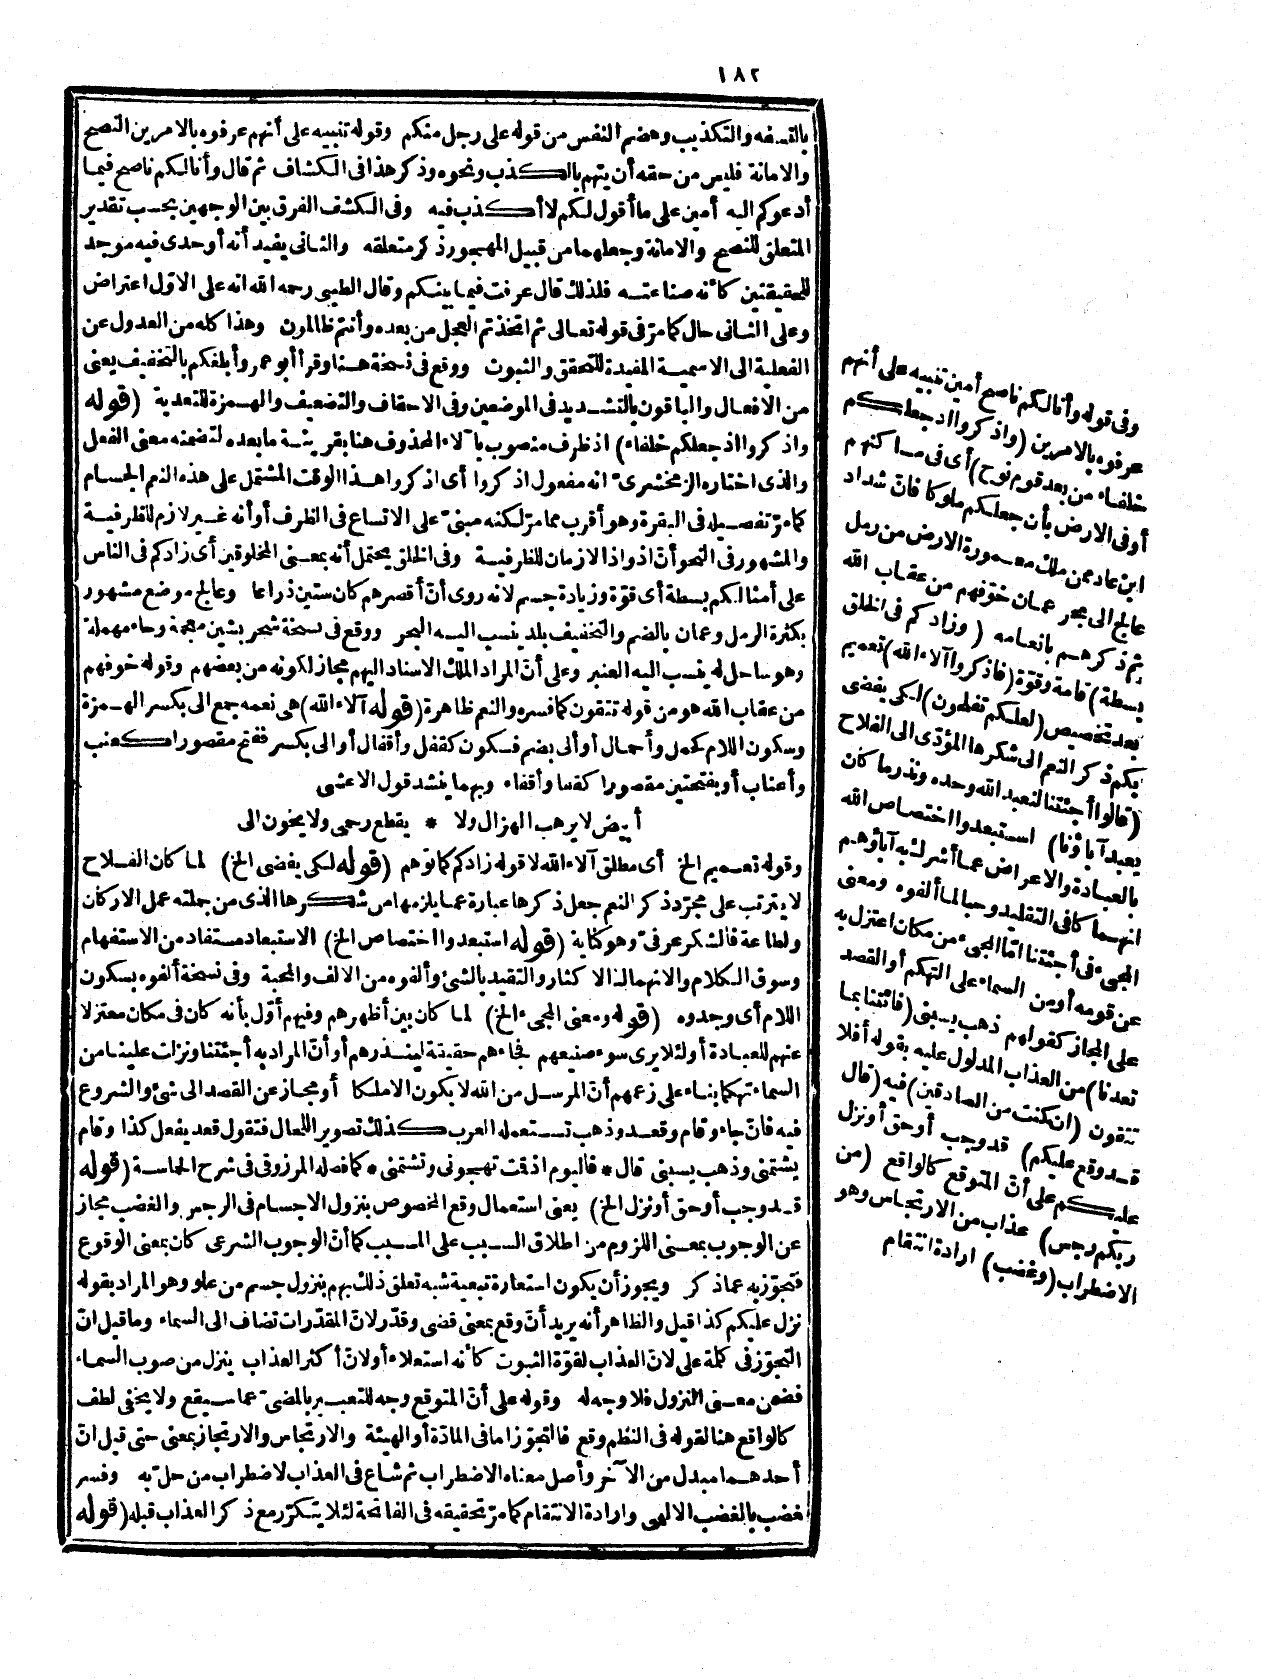 ١٨٢
بالتسفه والتكذيب وهضم النفس من قوله على رجل منكم وقوله تنبيه على أنهم عرفوه بالامرين النصح
والامانة فليس من حقه أن يتهم بالكذب ونحوه وذكر هذا فى الكشاف ثم قال وأنا لكم ناصح فيما
أدعوكم اليه أمين على ما أقول لكم لا أكذب فيه وفى الكشف الفرق بين الوجهين بحسب تقدير
المتعلق للنصح والامانة وجعلهما من قبيل المهجور ذكر متعلقه والثانى يفيد أنه أوحدى فيه موجد
للحقيقتين كأنه صناعته فلذلك قال عرفت فيما بينكم وقال الطيبى رحمه الله انه على الاول اعتراض
وعلى الثانى حال كما مرّ فى قوله تعالى ثم اتخذتم العجل من بعده وأنتم ظالمون وهذا كله من العدول عن
الفعلية الى الاسمية المفيدة للتحقق والثبوت ووقع فى نسخة هنا وقرأ أبو عمرو أبلغكم بالتخفيف يعنى
من الافعال والباقون بالتشديد فى الموضعين وفى الاحقاف والتضعيف والهمزة للتعدية (قوله
واذكروا اذ جعلكم خلفاء) اذ ظرف منصوب بآلاء المحذوف هنا بقرينة ما بعده لتضمنه معنى الفعل
والذى اختاره الزمخشرىّ انه مفعول اذكروا أى اذكروا هذا الوقت المشتمل على هذه النم الجسام
كما مرّ تفصيله فى البقرة وهو أقرب مما مرّ لكنه مبنىّ على الاتساع فى الظرف أو أنه غير لازم للظرفية
والمشهور فى النحو أنّ اذ واذا لازمان للظرفية وفى الخلق يحتمل أنه بمعنى المخلوقين أى زادكم فى الناس
على أمثالكم بسطة أى قوّة وزيادة جسم لانه روى أنّ أقصرهم كان ستين ذراعا وعالج موضع مشهور
بكثرة الرمل وعمان بالضم والتخفيف بلد ينسب اليه البحر ووقع فى نسخة شحر بشين معجمة وحاء مهملة
وهو ساحل له ينسب اليه العنبر وعلى أنّ المراد الملك الاسناد اليهم مجاز لكونه من بعضهم وقوله خوفهم
من عقاب الله هو من قوله تتقون كما فسره والنعم ظاهرة (قوله آلاء الله) هى نعمه جمع الى بكسر الهمزة
وسكون اللام كحمل وأحمال أو ألى بضم فسكون كقفل وأقفال أو الى بكسر ففتح مقصورا كعنب
وأعناب أو بفتحتين مقصورا كقفا وأقفاء وبهما ينشد قول الاعشى
أبيض لا يرهب الهزال ولا * يقطع رحمى ولا يخون الى
وقوله تعميم الخ أى مطلق آلاء الله لا قوله زادكم كما توهم (قوله لكى يفضى الخ) لما كان الفلاح
لا يترتب على مجرّد ذكر النعم جعل ذكرها عبارة عما يلزمها من شكرها الذى من جملته عمل الاركان
ولطاعة فالشكر عرفىّ وهو كناية (قوله استبعدوا اختصاص الخ) الاستبعاد مستفاد من الاستفهام
وسوق الكلام والانهماك الاكثار والتقيد بالشئ وألفوه من الالف والمحبة وفى نسخة ألفوه بسكون
اللام أى وجدوه (قوله ومعنى المجىء الخ) لما كان بين أظهرهم وفيهم أوّل بأنه كان فى مكان معتزلا
عنهم للعبادة أو لئلا يرى سوء صنيعهم فجاءهم حقيقة لينذرهم أو أنّ المراد به أجئتنا ونزلت علينا من
السماء تهكما بناء على زعمهم أنّ المرسل من الله لا يكون الا ملكا أو مجاز عن القصد الى شئ والشروع
فيه فانّ جاء وقام وقعد وذهب تستعمله العرب كذلك تصوير اللحال فتقول قعد يفعل كذا وقام
يشتمنى وذهب يسبنى قال * فاليوم اذ قت تهجونى وتشتمنى * كما فصله المرزوقى فى شرح الحماسة (قوله
قد وجب أو حق أو نزل الخ) يعنى استعمال وقع المخصوص بنزول الاجسام فى الرجس والغضب مجاز
عن الوجوب بمعنى اللزوم من اطلاق السبب على المسبب كما أنّ الوجوب الشرعى كان بمعنى الوقوع
فتجوّز به عما ذكر ويجوز أن يكون استعارة تبعية شبه تعلق ذلك بهم بنزول جسم من علو وهو المراد بقوله
نزل عليكم كذا قيل والظاهر أنه يريد أنّ وقع بمعنى قضى وقدّر لانّ المقدّرات تضاف الى السماء وما قيل انّ
التجوّز فى كلمة على لانّ العذاب لقوّة الثبوت كأنه استعلاء أو لانّ أكثر العذاب ينزل من صوب السماء
فضمن معنى النزول فلا وجه له وقوله على أنّ المتوقع وجه للتعبير بالمضىّ عما سيقع ولا يخفى لطف
كالواقع هنا لقوله فى النظم وقع فالتجوّز اما فى المادّة أو الهيئة والارتجاس والارتجاز بمعنى حتى قيل انّ
أحدهما مبدل من الآخر وأصل معناه الاضطراب ثم شاع فى العذاب لاضطراب من حلّ به وفسر
غضب بالغضب الالهى وارادة الانتقام كما مرّ تحقيقه فى الفاتحة لئلا يتكرّر مع ذكر العذاب قبله (قوله
وفى قوله وأنا لكم ناصح أمين تنبيه على أنهم
عرفوه بالامرين (واذكروا اذ جعلكم
خلفاء من بعد قوم نوح) أى فى مساكنهم
أو فى الارض بأن جعلكم ملوكا فانّ شداد
ابن عاد ممن ملك معمورة الارض من رمل
عالج الى بحر عمان خوّفهم من عقاب الله
ثم ذكرهم بانعامه (وزادكم فى الخلق
بسطة) قامة وقوّة (فاذكروا آلاء الله) تعميم
بعد تخصيص (لعلكم تفلحون) لكى يفضى
بكم ذكر النعم الى شكرها المؤدّى الى الفلاح
(قالوا أجئتنا لنعبد الله وحده ونذر ما كان
يعبد آباؤنا) استبعدوا اختصاص الله
بالعبادة والاعراض عما أشرك به آباؤهم
انهما كا فى التقليد وحبا لما ألفوه ومعنى
المجىء فى أجئتنا امّا المجىء من مكان اعتزل به
عن قومه أو من السماء على التهكم أو القصد
على المجاز كقولهم ذهب يسبنى (فائتنا بما
تعدنا) من العذاب المدلول عليه بقوله أفلا
تتقون (ان كنت من الصادقين) فيه (قال
قد وقع عليكم) قد وجب أو حق أو نزل
عليكم على أنّ المتوقع كالواقع (من
ربكم رجس) عذاب من الارتجاس وهو
الاضطراب (وغضب) ارادة انتقام